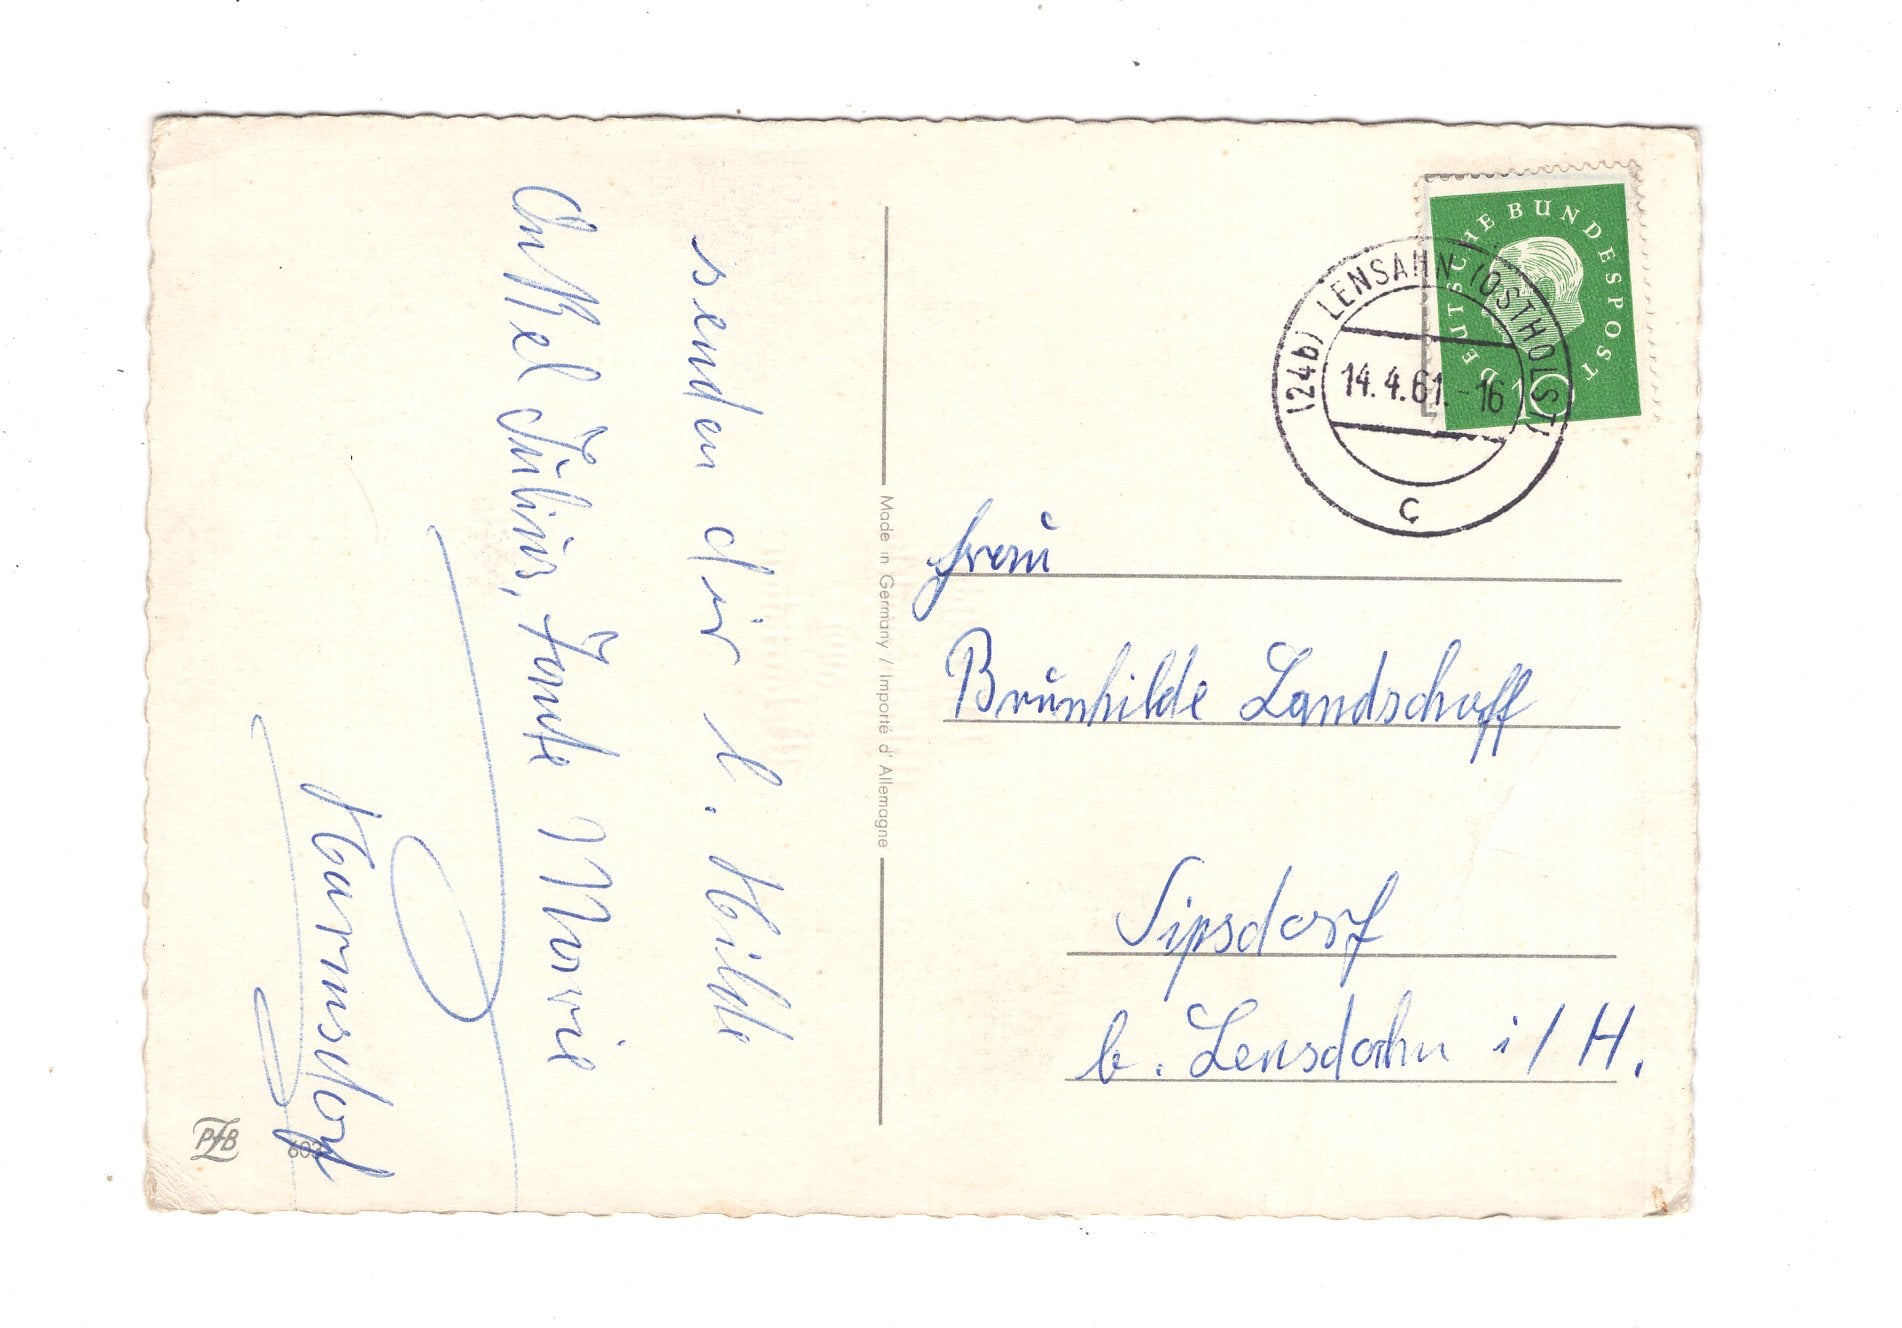 senden dir l. Hilde
Onkel Julius, Tante Marie
Harmsdorf
PZB
603
Made in Germany / Importé d' Allemagne
DEUTSCHE BUNDESPOST
10
(24b) LENSAHN (OSTHOLST)
14.4.61.-16
c
Frau
Brunhilde Landschoff
Sipsdorf
b. Lensdahn i/H.